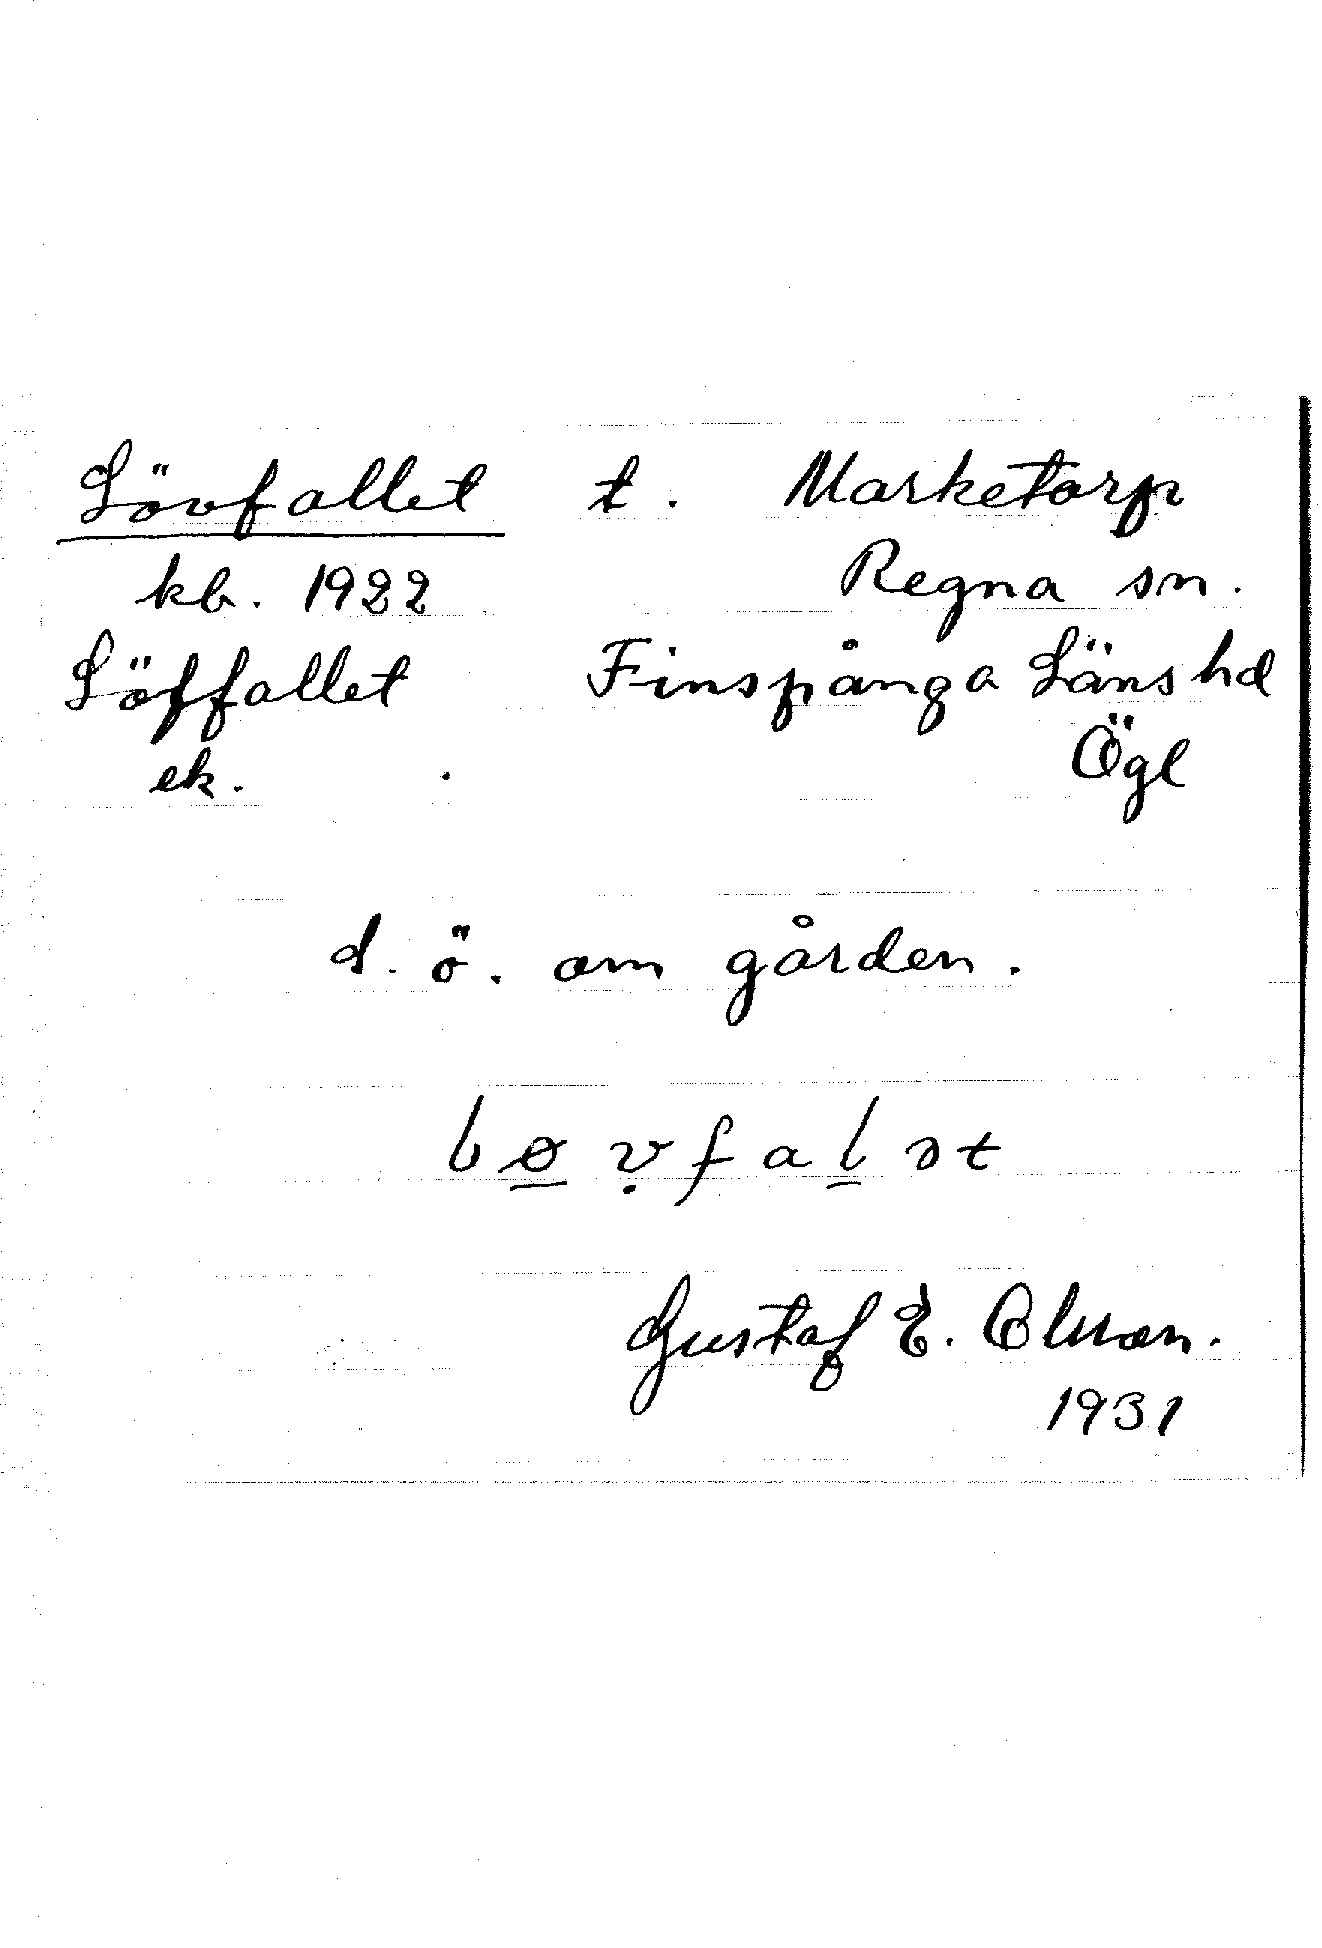 Lövfallet t. Marketorp
kb. 1922 Regna sn.
Löffallet Finspånga Läns hd
ek. Ögl
d. ö. om gården.
løvfalət
Gustaf E. Olsson.
1931